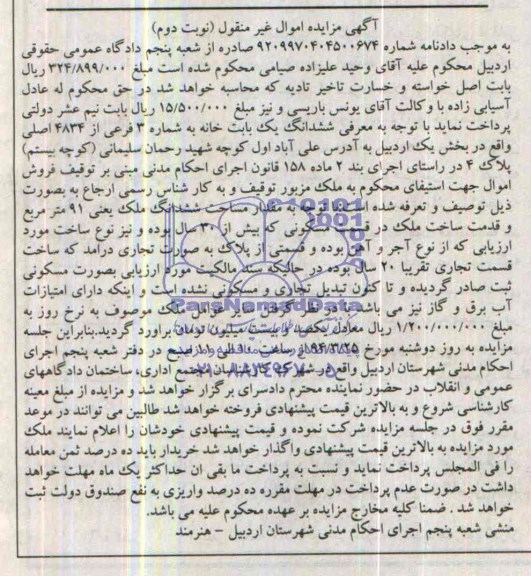 آگهی مزایده اموال غیر منقول (نوبت دوم)
به موجب دادنامه شماره ۹۲۰۹۹۷۰۴۰۴۵۰۰۶۷۴ صادره از شعبه پنجم دادگاه عمومی حقوقی
اردبیل محکوم علیه آقای وحید علیزاده صیامی محکوم شده است مبلغ ۳۲۴/۸۹۹/۰۰۰ ریال
بابت اصل خواسته و خسارت تاخیر تادیه که محاسبه خواهد شد در حق محکوم له عادل
آسیابی زاده با وکالت آقای یونس باریسی و نیز مبلغ ۱۵/۵۰۰/۰۰۰ ریال بابت نیم عشر دولتی
پرداخت نماید با توجه به معرفی ششدانگ یک بابت خانه به شماره ۳ فرعی از ۴۸۳۴ اصلی
واقع در بخش یک اردبیل به آدرس علی آباد اول کوچه شهید رحمان سلیمانی (کوچه بیستم)
پلاک ۴ در راستای اجرای بند ۲ ماده ۱۵۸ قانون اجرای احکام مدنی مبنی بر توقیف فروش
اموال جهت استیفای محکوم به ملک مزبور توقیف و به کار شناس رسمی ارجاع به بصورت
ذیل توصیف و تعرفه شده به مقدار مساحت ششدانگ ملک یعنی ۹۱ متر مربع
و قدمت ساخت ملک در مسکونی که بیش از ۳۰ سال بوده و نیز نوع ساخت مورد
ارزیابی که از نوع آجر و آهن بوده و قسمتی از پلاک به صورت تجاری درامد که ساخت
قسمت تجاری تقریبا ۲۰ سال بوده در حالیکه سند مالکیت مورد ارزیابی بصورت مسکونی
ثبت صادر گردیده و تا کنون تبدیل تجاری و مسکونی نشده است و اینکه دارای امتیازات
آب برق و گاز نیز می باشد با در نظر گرفتن سایر عوامل ملک موصوف به نرخ روز به
مبلغ ۱/۲۰۰/۰۰۰/۰۰۰ ریال معادل یکصد و بیست میلیون تومان براورد گردید.بنابراین جلسه
مزایده به روز دوشنبه مورخ ۹۴/۳/۲۵ از ساعت در دفتر شعبه پنجم اجرای
احکام مدنی شهرستان اردبیل واقع در مجتمع اداری، ساختمان دادگاههای
عمومی و انقلاب در حضور نماینده محترم دادسرای برگزار خواهد شد و مزایده از مبلغ معینه
کارشناسی شروع و به بالاترین قیمت پیشنهادی فروخته خواهد شد طالبین می توانند در موعد
مقرر فوق در جلسه مزایده شرکت نموده و قیمت پیشنهادی خودشان را اعلام نمایند ملک
مورد مزایده به بالاترین قیمت پیشنهادی واگذار خواهد شد خریدار باید ده درصد ثمن معامله
را فی المجلس پرداخت نماید و نسبت به پرداخت ما بقی ان حداکثر یک ماه مهلت خواهد
داشت در صورت عدم پرداخت در مهلت مقرره ده درصد واریزی به نفع صندوق دولت ثبت
خواهد شد . ضمنا کلیه مخارج مزایده بر عهده محکوم علیه می باشد.
منشی شعبه پنجم اجرای احکام مدنی شهرستان اردبیل - هنرمند
ParsNamadData